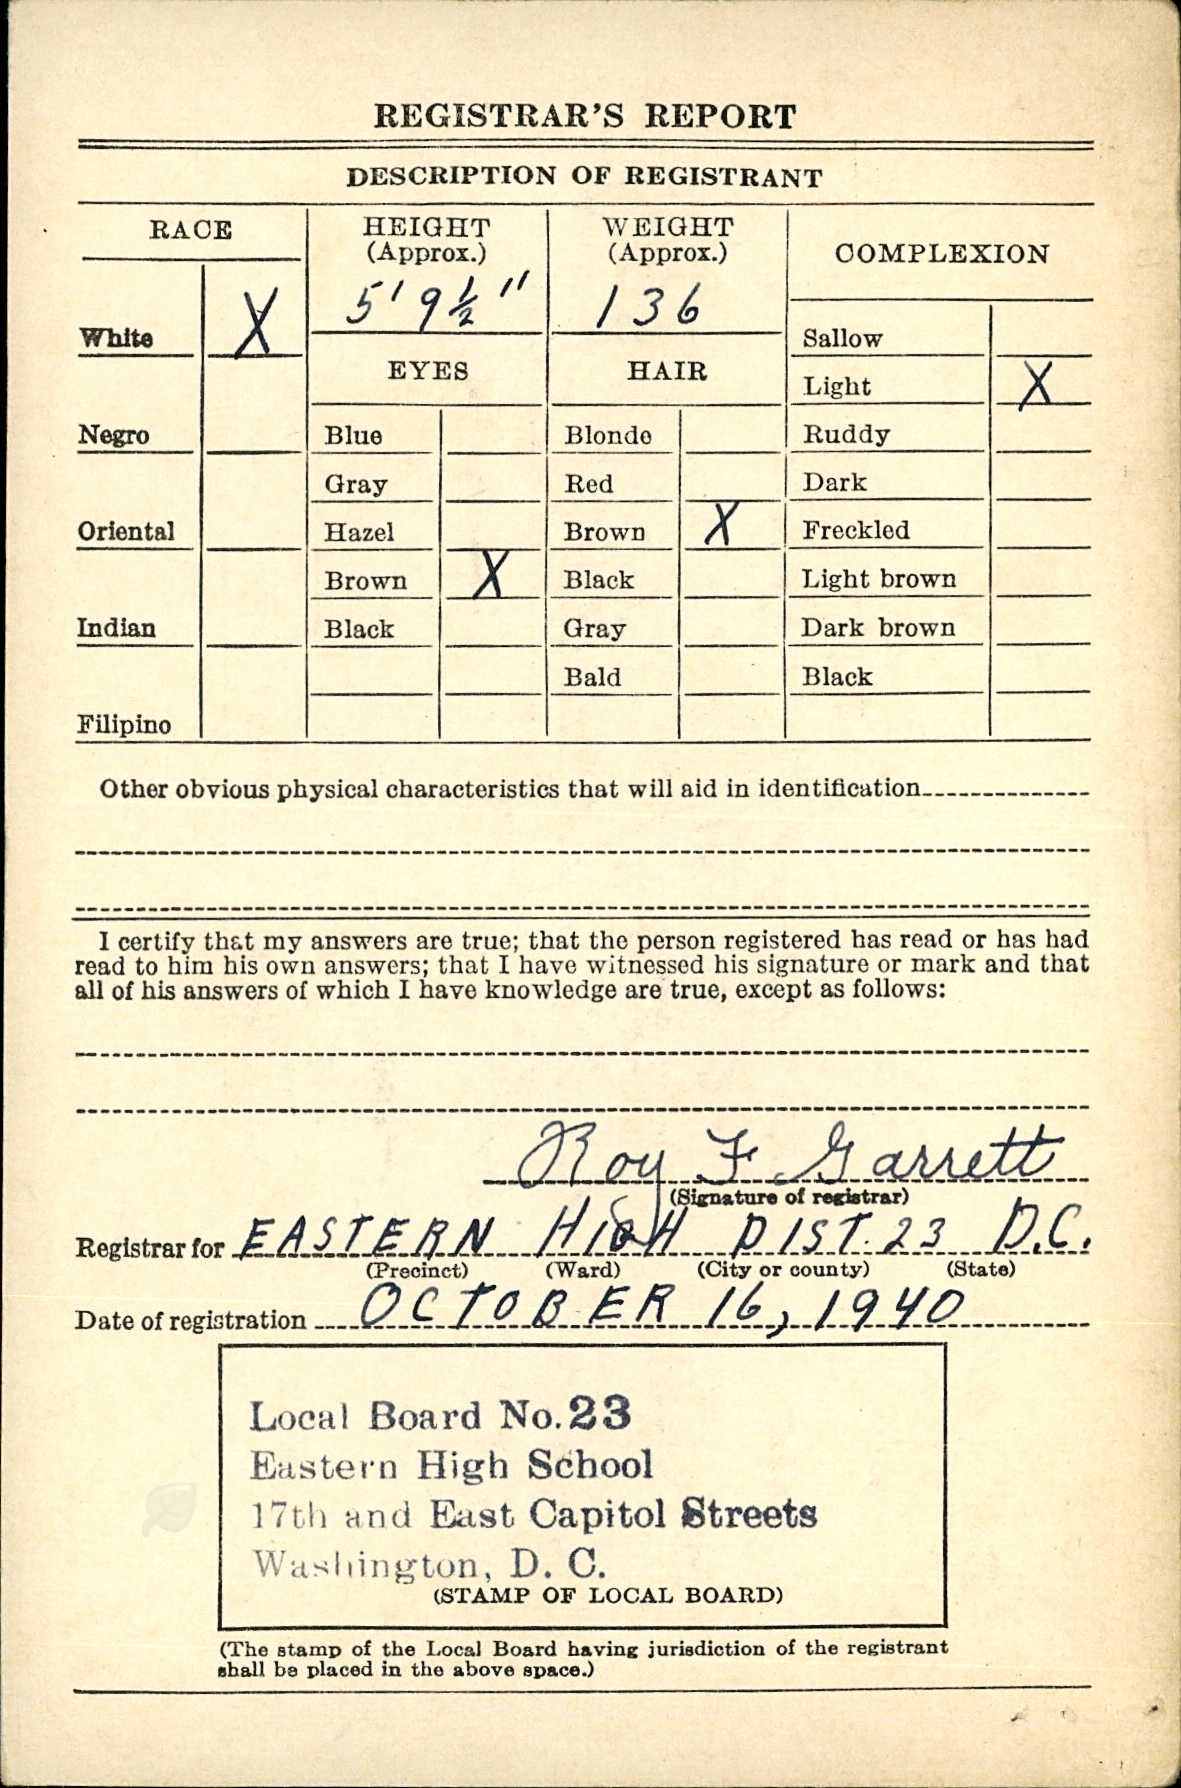 REGISTRAR'S REPORT
DESCRIPTION OF REGISTRANT
RACE
HEIGHT
(Approx.)
WEIGHT
(Approx.)
COMPLEXION
5' 9 1/2 "
136
White X
Sallow
EYES
HAIR
Light X
Negro
Blue
Blonde
Ruddy
Gray
Red
Dark
Oriental
Hazel
Brown X
Freckled
Brown X
Black
Light brown
Indian
Black
Gray
Dark brown
Bald
Black
Filipino
Other obvious physical characteristics that will aid in identification
I certify that my answers are true; that the person registered has read or has had
read to him his own answers; that I have witnessed his signature or mark and that
all of his answers of which I have knowledge are true, except as follows:
Roy F Garrett
(Signature of registrar)
Registrar for EASTERN HIGH DIST. 23 D.C.
(Precinct) (Ward) (City or county) (State)
Date of registration OCTOBER 16, 1940
Local Board No. 23
Eastern High School
17th and East Capitol Streets
Washington, D. C.
(STAMP OF LOCAL BOARD)
(The stamp of the Local Board having jurisdiction of the registrant
shall be placed in the above space.)